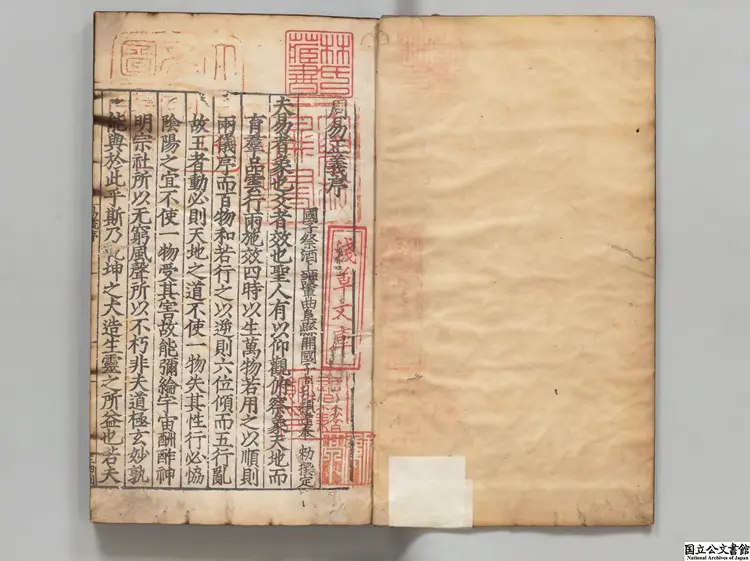 周易正義序
國子祭酒上護軍曲阜縣開國子臣孔穎達奉 勑撰定
夫易者象也爻者效也聖人有以仰觀俯察象天地而
育羣品雲行雨施效四時以生萬物若用之以順則
兩儀序而百物和若行之以逆則六位傾而五行亂
故王者動必則天地之道不使一物失其性行必協
陰陽之宜不使一物受其害故能彌綸宇宙酬酢神
明宗社所以无窮風聲所以不朽非夫道極玄妙孰
能與於此乎斯乃乾坤之大造生靈之所益也若夫
林氏藏書
淺草文庫
国立公文書館
National Archives of Japan